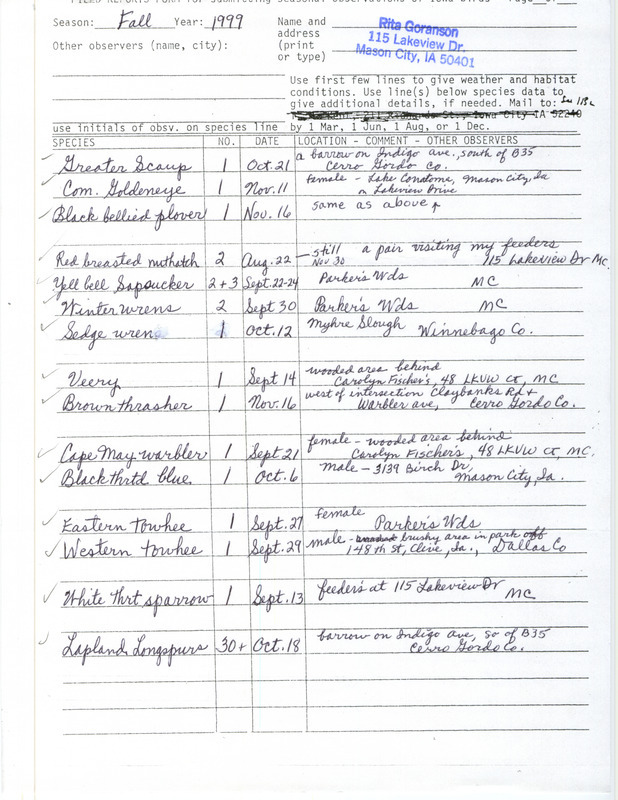 FIELD REPORTS FORM for submitting seasonal observations of Iowa birds Page of
Season: Fall Year: 1999 Name and
address
(print
or type)
Rita Goranson
115 Lakeview Dr.
Mason City, IA 50401
Other observers (name, city):
Use first few lines to give weather and habitat
conditions. Use line(s) below species data to
give additional details, if needed. Mail to:
St., Iowa City IA 52240
use initials of obsv. on species line by 1 Mar, 1 Jun, 1 Aug, or 1 Dec.
SPECIES NO. DATE LOCATION - COMMENT - OTHER OBSERVERS
Greater Scaup 1 Oct. 21 a barrow on Indigo ave., south of B35
Cerro Gordo Co.
Com. Goldeneye 1 Nov. 11 female - Lake Conatoma, Mason City, Ia
on Lakeview Drive
Black bellied plover 1 Nov. 16 same as above ↑
Red breasted nuthatch 2 Aug. 22 — still a pair visiting my feeders
Nov 30 115 Lakeview Dr MC
Yell bell Sapsucker 2 + 3 Sept. 22-24 Parker's Wds MC
Winter wrens 2 Sept 30 Parker's Wds MC
Sedge wren 1 Oct. 12 Myhre Slough Winnebago Co.
Veery 1 Sept 14 wooded area behind
Carolyn Fischer's, 48 LKVW CT, MC
Brown thrasher 1 Nov. 16 west of intersection Claybanks Rd +
Warbler ave, Cerro Gordo Co.
Cape May warbler 1 Sept 21 female - wooded area behind
Carolyn Fischer's, 48 LKVW CT, MC.
Black thrtd blue. 1 Oct. 6 male - 3139 Birch Dr,
Mason City, Ia.
Eastern towhee 1 Sept. 27 female Parker's Wds
Western towhee 1 Sept. 29 male - brushy area in park off
148 th St, Clive, Ia., Dallas Co
White thrt sparrow 1 Sept. 13 feeders at 115 Lakeview Dr MC
Lapland Longspurs 30+ Oct. 18 barrow on Indigo Ave, so of B35
Cerro Gordo Co.